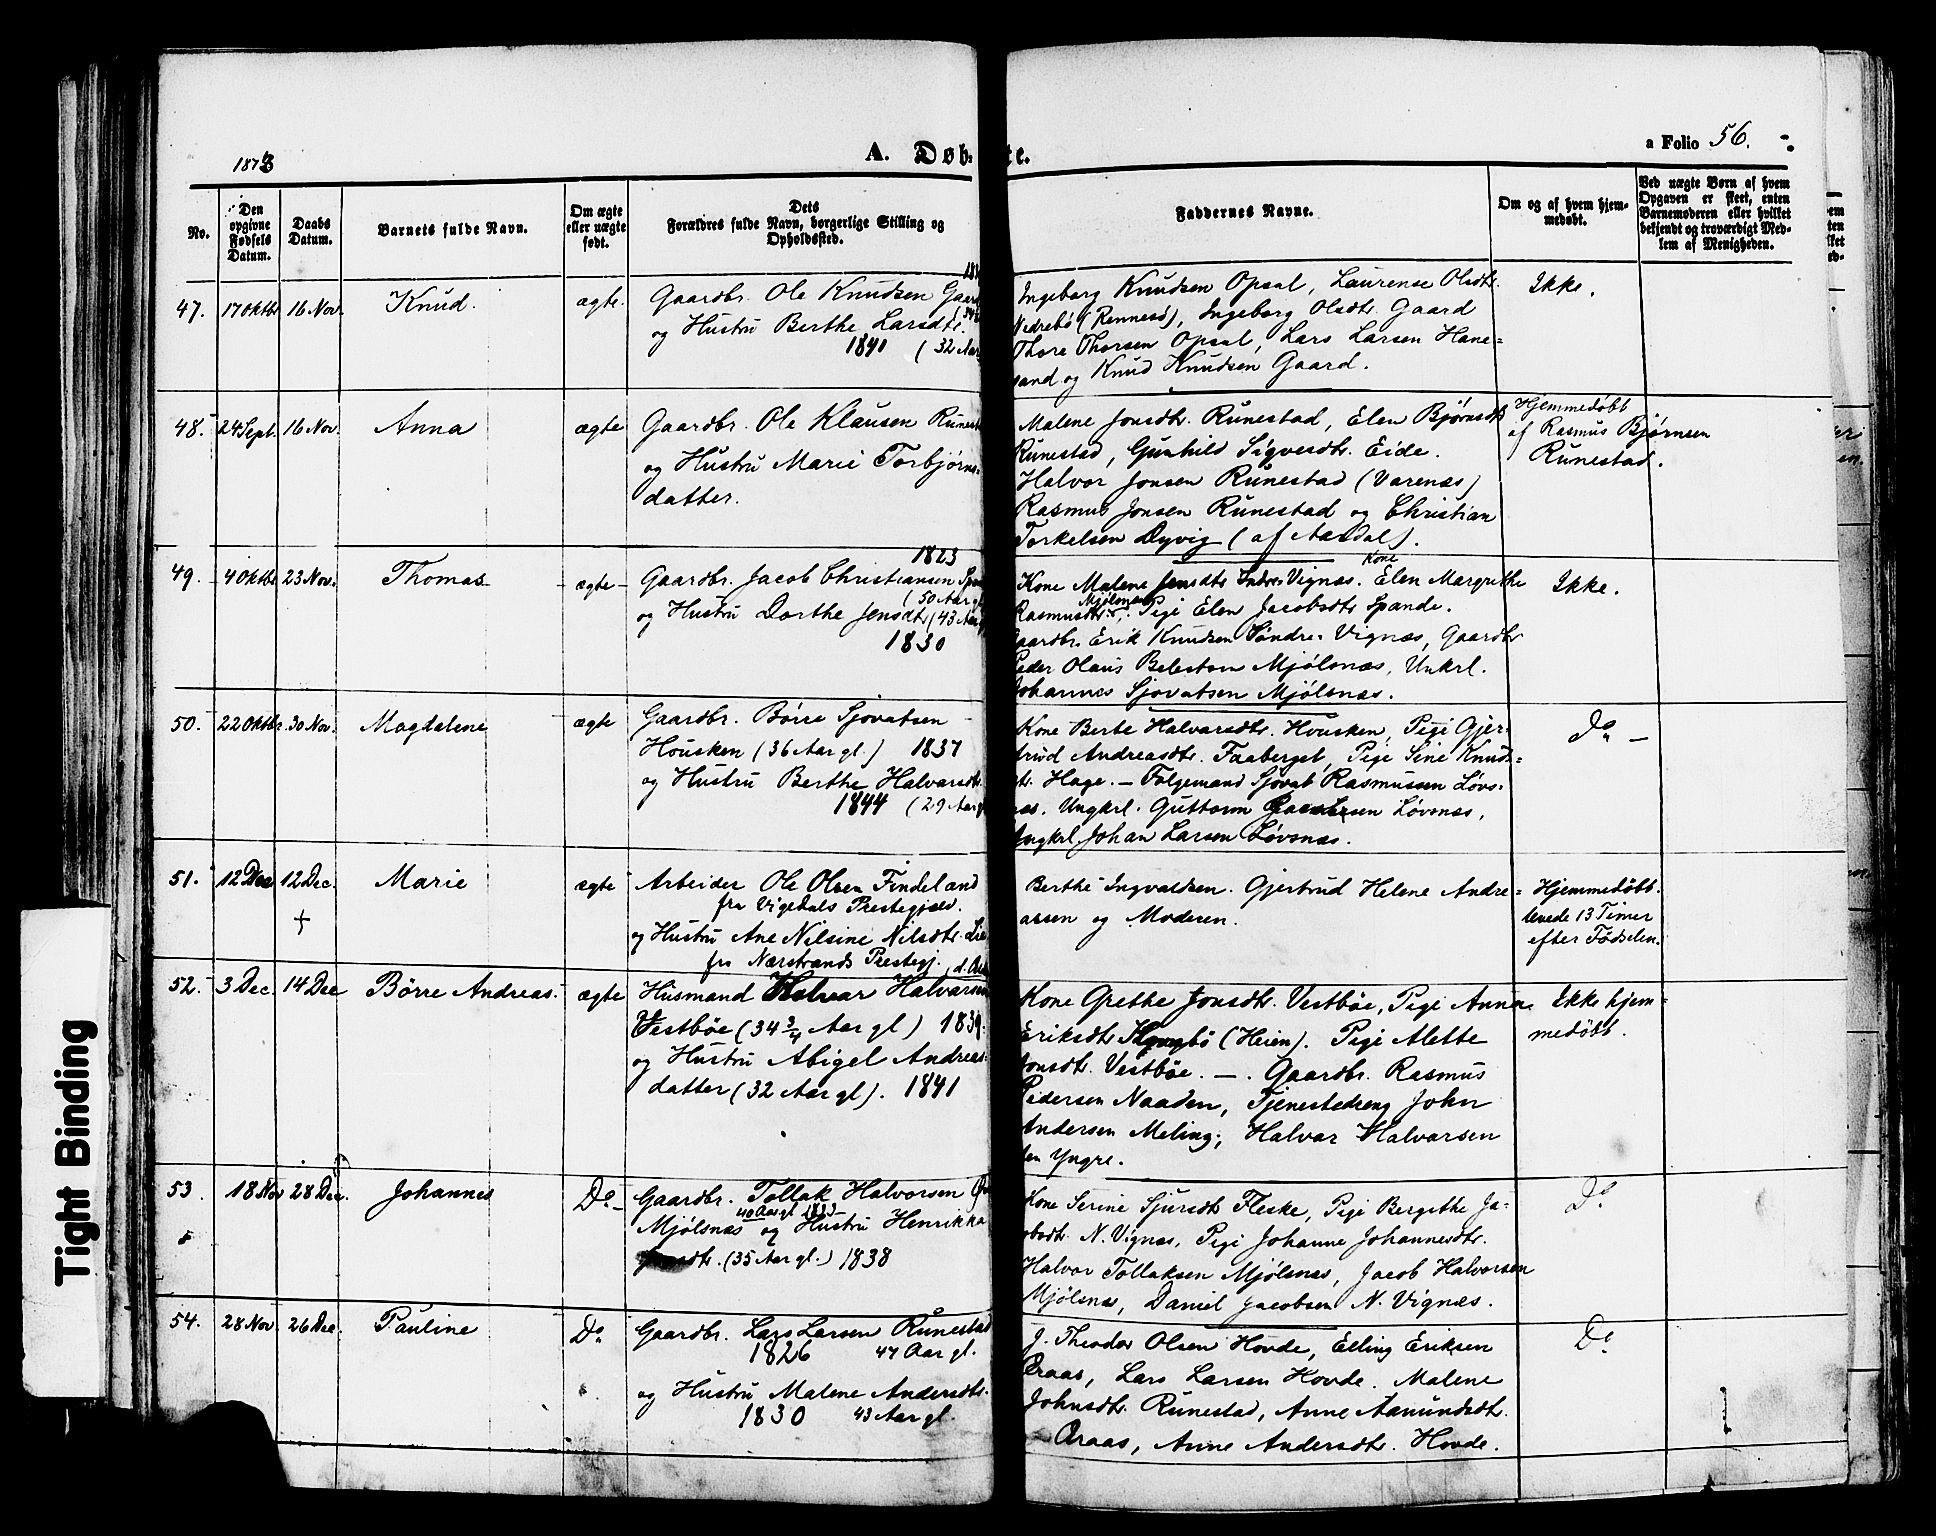 1873
A. Døbte.
a Folio 56.
No.
Den opgivne Fødsels Datum.
Daabs Datum.
Barnets fulde Navn.
Om ægte eller uægte født.
Dets Forældres fulde Navn, borgerlige Stilling og Opholdssted.
Faddernes Navne.
Om og af hvem hjemmedøbt.
Ved uægte Børn af hvem Opgaven er skeet, enten Barnemoderen eller hvilket bekjendt og troværdigt Medlem af Menigheden.
47. 17 Oktbr 16 Nov. Knud. ægte.
Gaardbr. Ole Knudsen Gaard
og Hustru Berthe Larsdtr.
1841 (32 Aar
Ingeborg Knudsen Opsal, Laurense Olsdtr.
Nedrebö (Rennesö), Ingeborg Olsdtr. Gaard
Thore Thorsen Opsal, Lars Larsen Hane=
sand og Knud Knudsen Gaard.
Ikke.
48. 24 Sept. 16 Nov. Anna ægte
Gaardbr. Ole Klausen Runest
og Hustru Marie Torbjørns-
datter.
Malene Jonsdtr. Runestad, Elen Bjørnsdtr
Runestad, Gunhild Sigvesdtr. Eide.
Halvor Jonsen Runestad (Varenæs)
Rasmus Jonsen Runestad og Christian
Torkelsen Dyvig (af Aardal).
Hjemmedøbt
af Rasmus Bjørnsen
Runestad.
49. 4 Oktbr 23 Nov. Thomas ægte
1823
Gaardbr. Jacob Christiansen
(50 Aar gl
og Hustru Dorthe Jensdtr (43 Aar
1830
Kone
Kone Malene Jensdtr Indre Vignæs. Elen Margrethe
Mjölsnæs
Rasmusdtr. Pige Elen Jacobsdtr Spande.
Gaardbr. Erik Knudsen Söndre Vignæs, Gaardbr
Peder Olaus Mjölsnæs, Unkrl.
Johannes Sjovatsen Mjölsnæs.
Ikke.
50. 22 Oktbr 30 Nov. Magdalene ægte
Gaardbr. Börre Sjovatsen
Housken (36 Aar gl.) 1837
og Hustru Berthe Halvarsdtr.
1844 (29 Aar gl
Kone Berte Halvarsdtr. Housken, Pige Gjer-
trud Andreasdtr. Faaberget, Pige Sine Knuds=
dtr. Hage. – Folgemand Sjovat Rasmussen Lövs-
næs. Ungkrl. Guttorm Lövsnæs,
Ungkrl. Johan Larsen Lövsnæs.
Do –
51. 12 Dec 12 Dec. Marie ægte
+
Arbeider Ole Olsen Findeland
fra Vigedals Prestegjæld.
og Hustru Ane Nilsine Nilsdtr.
fra Nærstrands Prestegj.
Berthe Ingvaldsen. Gjertrud Helene Andre=
assen og Moderen.
Hjemmedøbt.
levede 13 Timer
efter Fødselen.
52. 3 Dec. 14 Dec Börre Andreas. ægte
Husmand Halvar Halvarsen
Vestböe (34 3/4 Aar gl) 1839.
og Hustru Abigel Andreas-
datter (32 Aar gl). 1841
Kone Grethe Jonsdtr. Vestböe, Pige Anna
Eriksdtr (Heien). Pige Alette
Jonsdtr. Vestböe. –. Gaardbr. Rasmus
Pedersen Naaden, Tjenestedreng John
Andersen Meling, Halvar Halvarsen
den Yngre.
Ikke hjem=
medöbt.
53. 18 Nov 28 Dec. Johannes Do
Gaardbr. Tollak Halvorsen
40 Aar gl 1833
Mjölsnæs og Hustru Henrikka
(35 Aar gl.) 1838
Kone Serine Sjursdtr Fleske, Pige Bergithe Ja-
cobsdtr. N. Vignæs, Pige Johanne Johannesdtr.
Halvor Tollaksen Mjölsnæs, Jacob Halvorsen
Mjölsnæs, Daniel Jacobsen N. Vignæs.
Do
54. 28 Nov. 26 Dec. Pauline Do
Gaardbr. Lars Larsen Runestad
1826 47 Aar gl.
og Hustru Malene Andersdtr.
1830 43 Aar gl.
J. Theodor Olsen Hovde, Elling Eriksen
Draas, Lars Larsen Hovde. Malene
Johnsdtr. Runestad, Anne Aamundsdtr.
Draas, Anne Andersdtr. Hovde.
Do
Tight Binding